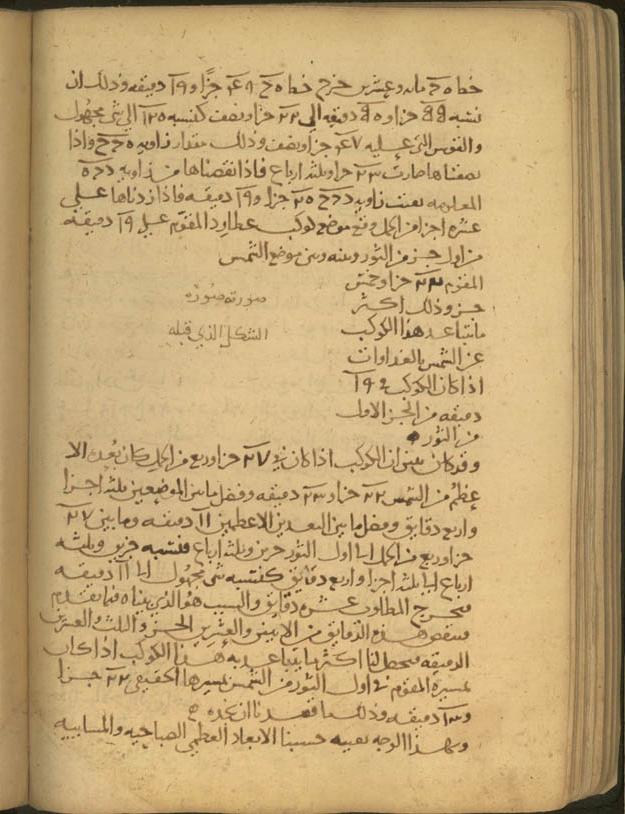 خط ه ح مائه وعشرين خرج خط ه ح جزا و ١٩ دقيقه وذلك ان
نسبه جزا و دقيقه الى جزا ونصف كنسبه الى شى مجهول
والقوس التى عليه جزا ونصف وذلك مقدار زاويه واذا
نصفناها صارت جزا وثلثه ارباع فاذا نقصناها من زاويه
المعلومه بقيت زاويه جزا و ١٩ دقيقه فاذا زدناها على
عشره اجزا من الحمل وقع موضع كوكب عطارد المقوم على ١٩ دقيقه
من اول جز من الثور وبينه وبين موضع الشمس
المقوم جزا وخمس
جز وذلك اكثر
صورته صوره
ما يتباعد هذا الكوكب
الشكل الذي قبله
عن الشمس بالغداوات
اذا كان الكوكب فى ١٩
دقيقه من الجز الاول
من الثور
وقد كان تبين ان الكوكب اذا كان فى جزا وربع من الحمل كان بعده الا
عظم من الشمس جزا و دقيقه وفضل ما بين الموضعين ثلثه اجزا
واربع دقايق وفضل ما بين البعدين الاعظمين ١١ دقيقه وما بين
جزا وربع من الحمل الى اول الثور جزين وثلثه ارباع فنسبه جزين وثلثه
ارباع الى ثلثه اجزا واربع دقايق كنسبه شى مجهول الى ١١ دقيقه
فيخرج المطلوب عشره دقايق والسبب هو الذي بيناه فيما تقدم
فننقص هذه الدقايق من الاثنين والعشرين الجز والثلث العشرين
الدقيقه فيحصل لنا اكثر ما يتباعد به هذا الكوكب اذا كان
مسيره المقوم فى اول الثور من الشمس بمسيرها الحقيقي جزا
و دقيقه وذلك ما قصدنا ان نجده
وبهذا الوجه بعينه حسبنا الابعاد العظمى الصباحيه والمسائيه